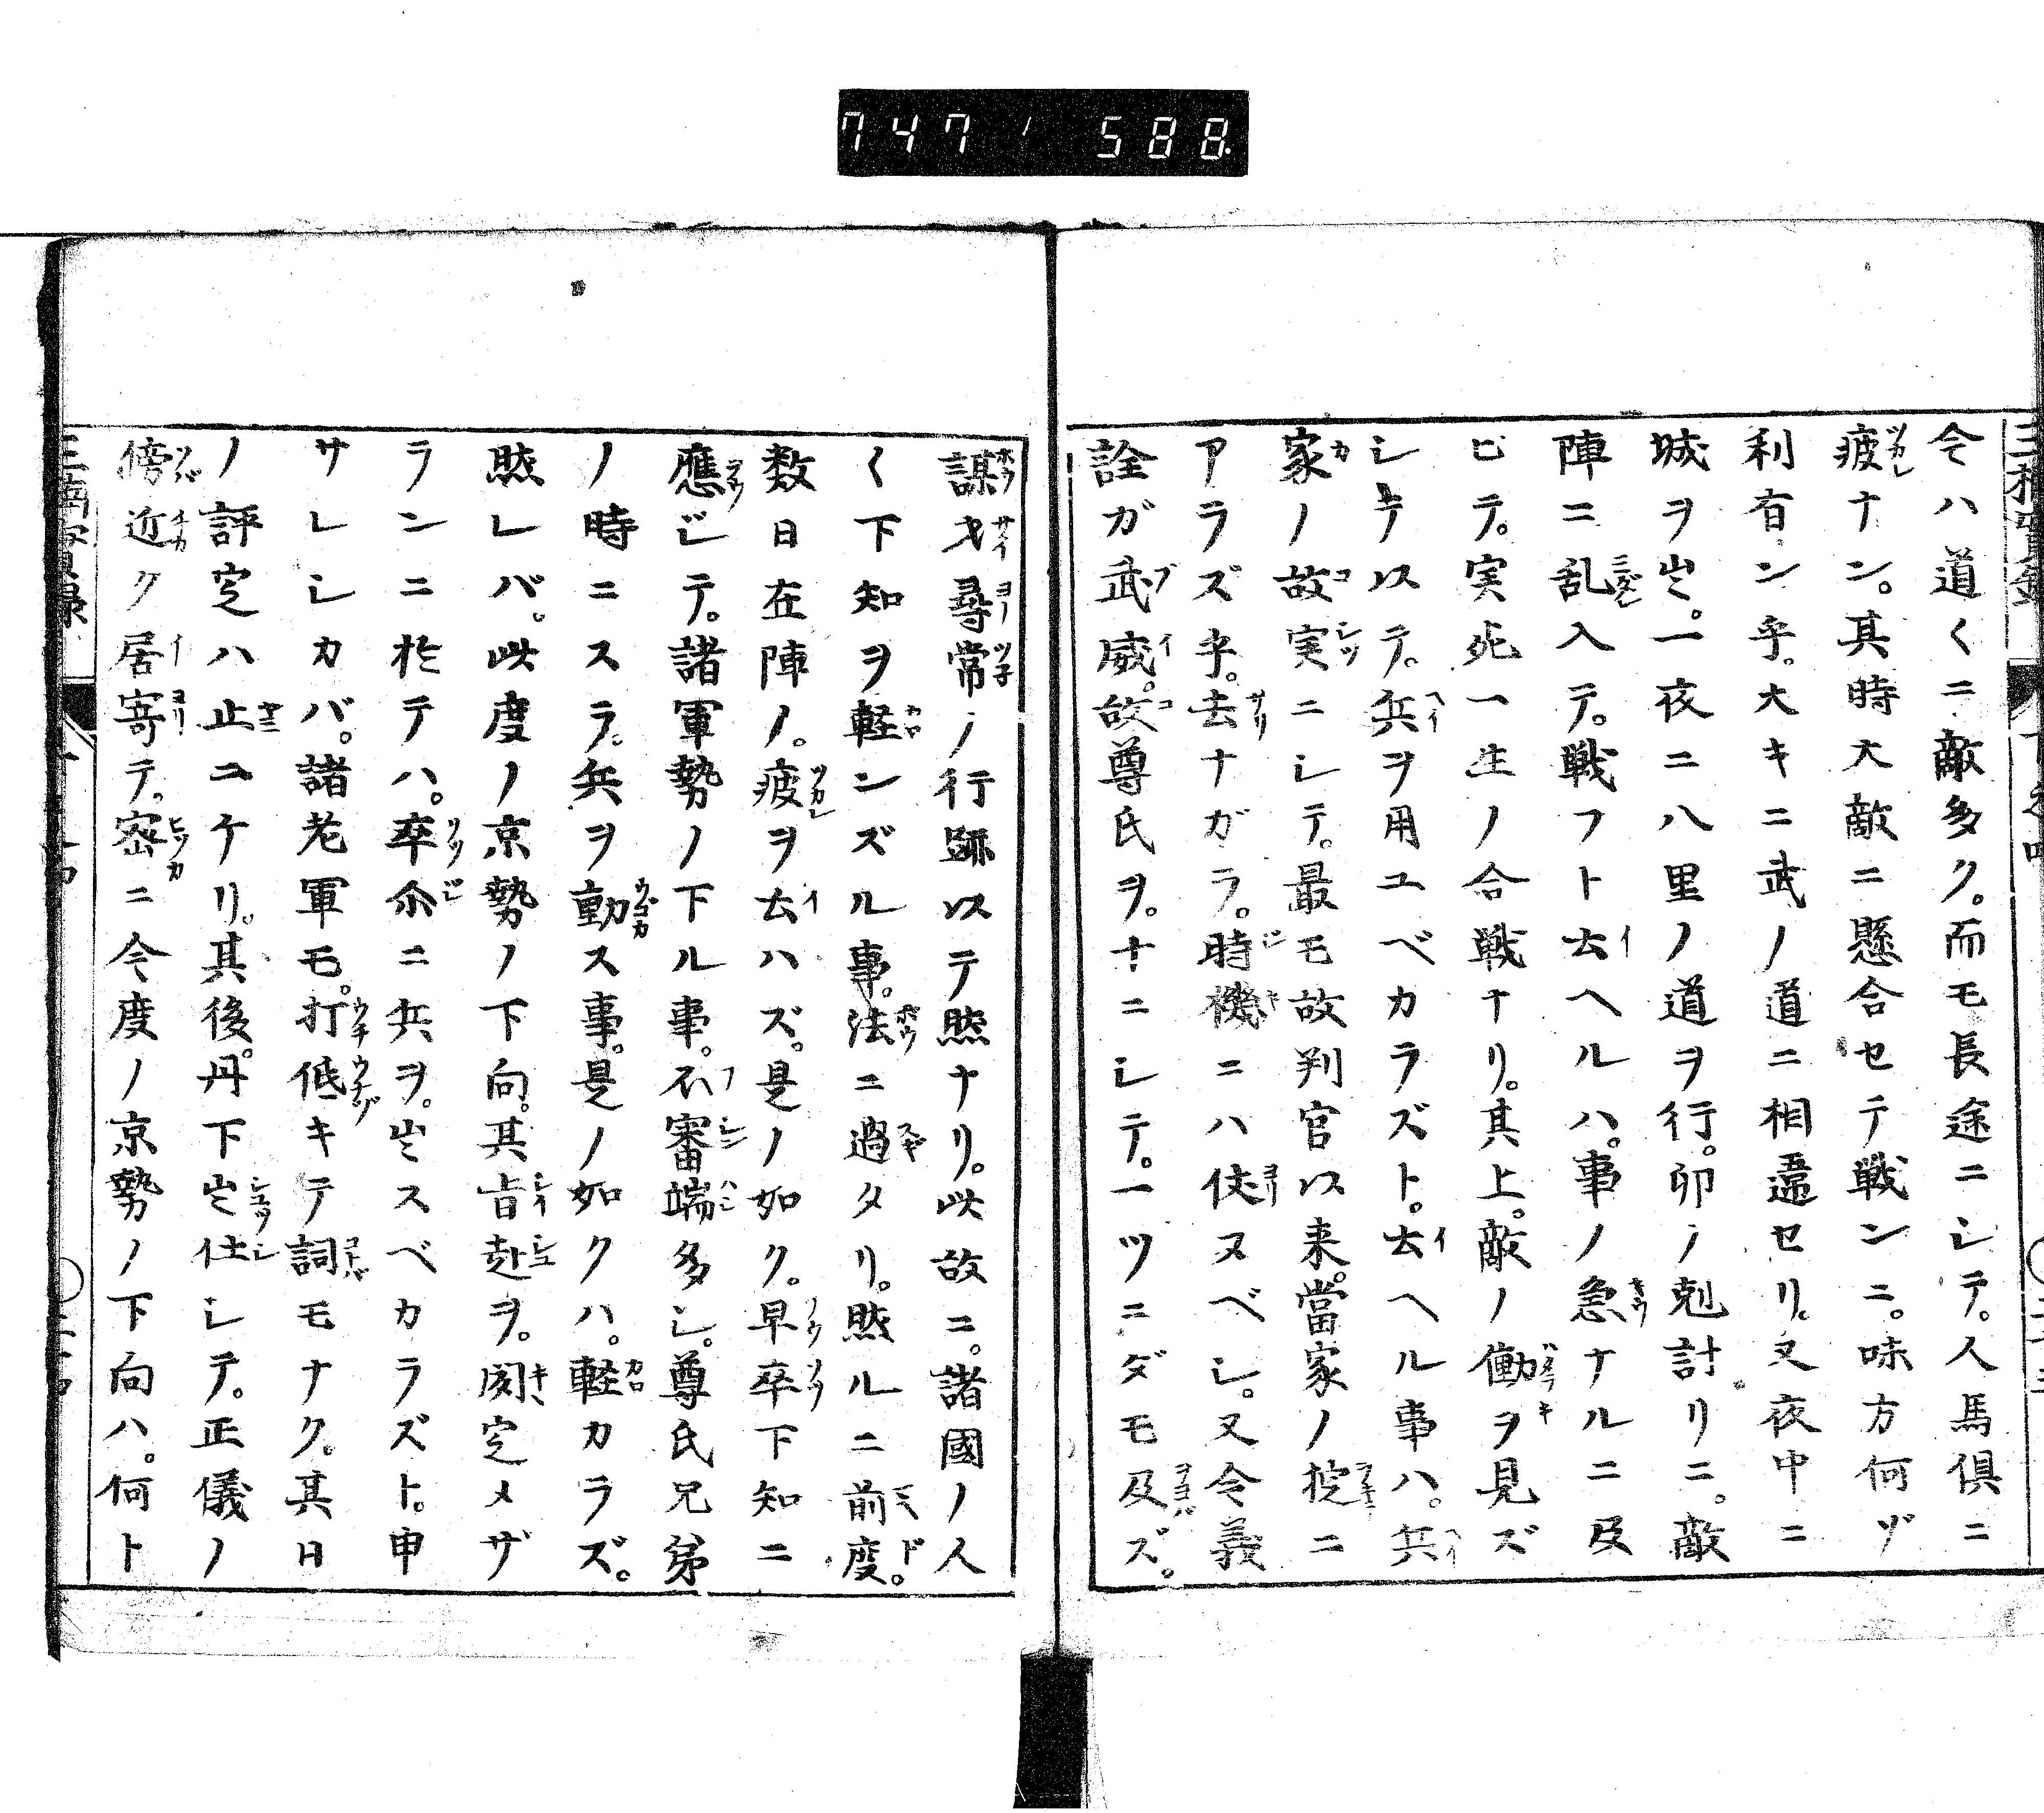 747 588
今ハ道〱ニ敵多ク。而モ長途ニシテ。人馬倶ニ
疲ナン。其時大敵ニ懸合セテ戦ンニ。味方何ゾ
利有ン乎。大キニ武ノ道ニ相違セリ。又夜中ニ
城ヲ出。一夜ニ八里ノ道ヲ行。卯ノ剋計リニ。敵
陣ニ乱入テ。戦フト云ヘルハ。事ノ急ナルニ及
ビテ。実死一生ノ合戦ナリ。其上。敵ノ働ヲ見ズ
シテ以テ。兵ヲ用ユベカラズト。云ヘル事ハ。兵
家ノ故実ニシテ。最モ故判官以来。當家ノ掟ニ
アラズ乎。去ナガラ。時機ニハ依ヌベシ。又令義
詮ガ武威。故尊氏ヲ。ナニシテ。一ツニダモ及ズ。
謀才尋常ノ行跡以テ然ナリ。此故ニ。諸國ノ人
〱下知ヲ軽ンズル事。法ニ過タリ。然ルニ前度。
数日在陣ノ。疲ヲ云ハズ。是ノ如ク。早卒下知ニ
應ジテ。諸軍勢ノ下ル事。不審端多シ。尊氏兄弟
ノ時ニスラ。兵ヲ動ス事。是ノ如クハ。軽カラズ。
然レバ。此度ノ京勢ノ下向。其旨趣ヲ。聞定メザ
ランニ於テハ。卒尓ニ兵ヲ。出スベカラズト。申
サレシカバ。諸老軍モ。打低キテ詞モナク。其日
ノ評定ハ止ニケリ。其後。丹下出仕シテ。正儀ノ
傍近ク居寄テ。密ニ今度ノ京勢ノ下向ハ。何ト